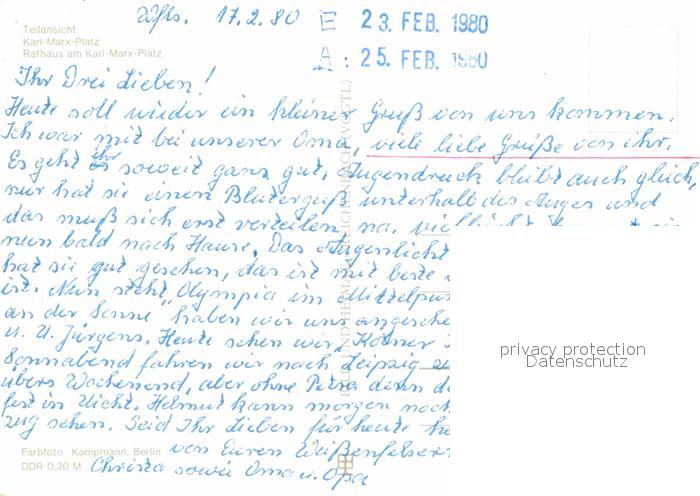 Wfls. 17.2.80
E 23. FEB. 1980
A: 25. FEB. 1980
Teilansicht
Karl-Marx-Platz
Rathaus am Karl-Marx-Platz
Ihr Drei Lieben!
Heute soll wieder ein kleiner Gruß von uns kommen.
Ich war mit bei unserer Oma, viele liebe Grüße von ihr.
Es geht ihr soweit ganz gut. Augendruck bleibt auch gleich,
nur hat sie einen Bluterguß unterhalb des Auges und
das muß sich erst verteilen, na, vielleicht
nun bald nach Hause. Das Augenlicht
hat sie gut gesehen, das ist mit beste
ist. Nun steht Olympia im Mittelpun
an der Sonne" haben wir uns angesehe
u. U. Jürgens. Heute sehen wir Kölner
Sonnabend fahren wir nach Leipzig zu
übers Wochenend, aber ohne Petra denn d
fest in Sicht. Helmut kann morgen noch
zug sehen. Seid Ihr Lieben für heute he
von Euren Weißenfelsern
Christa sowie Oma u. Opa
Farbfoto: Kampmann, Berlin
DDR 0,20 M
privacy protection
Datenschutz